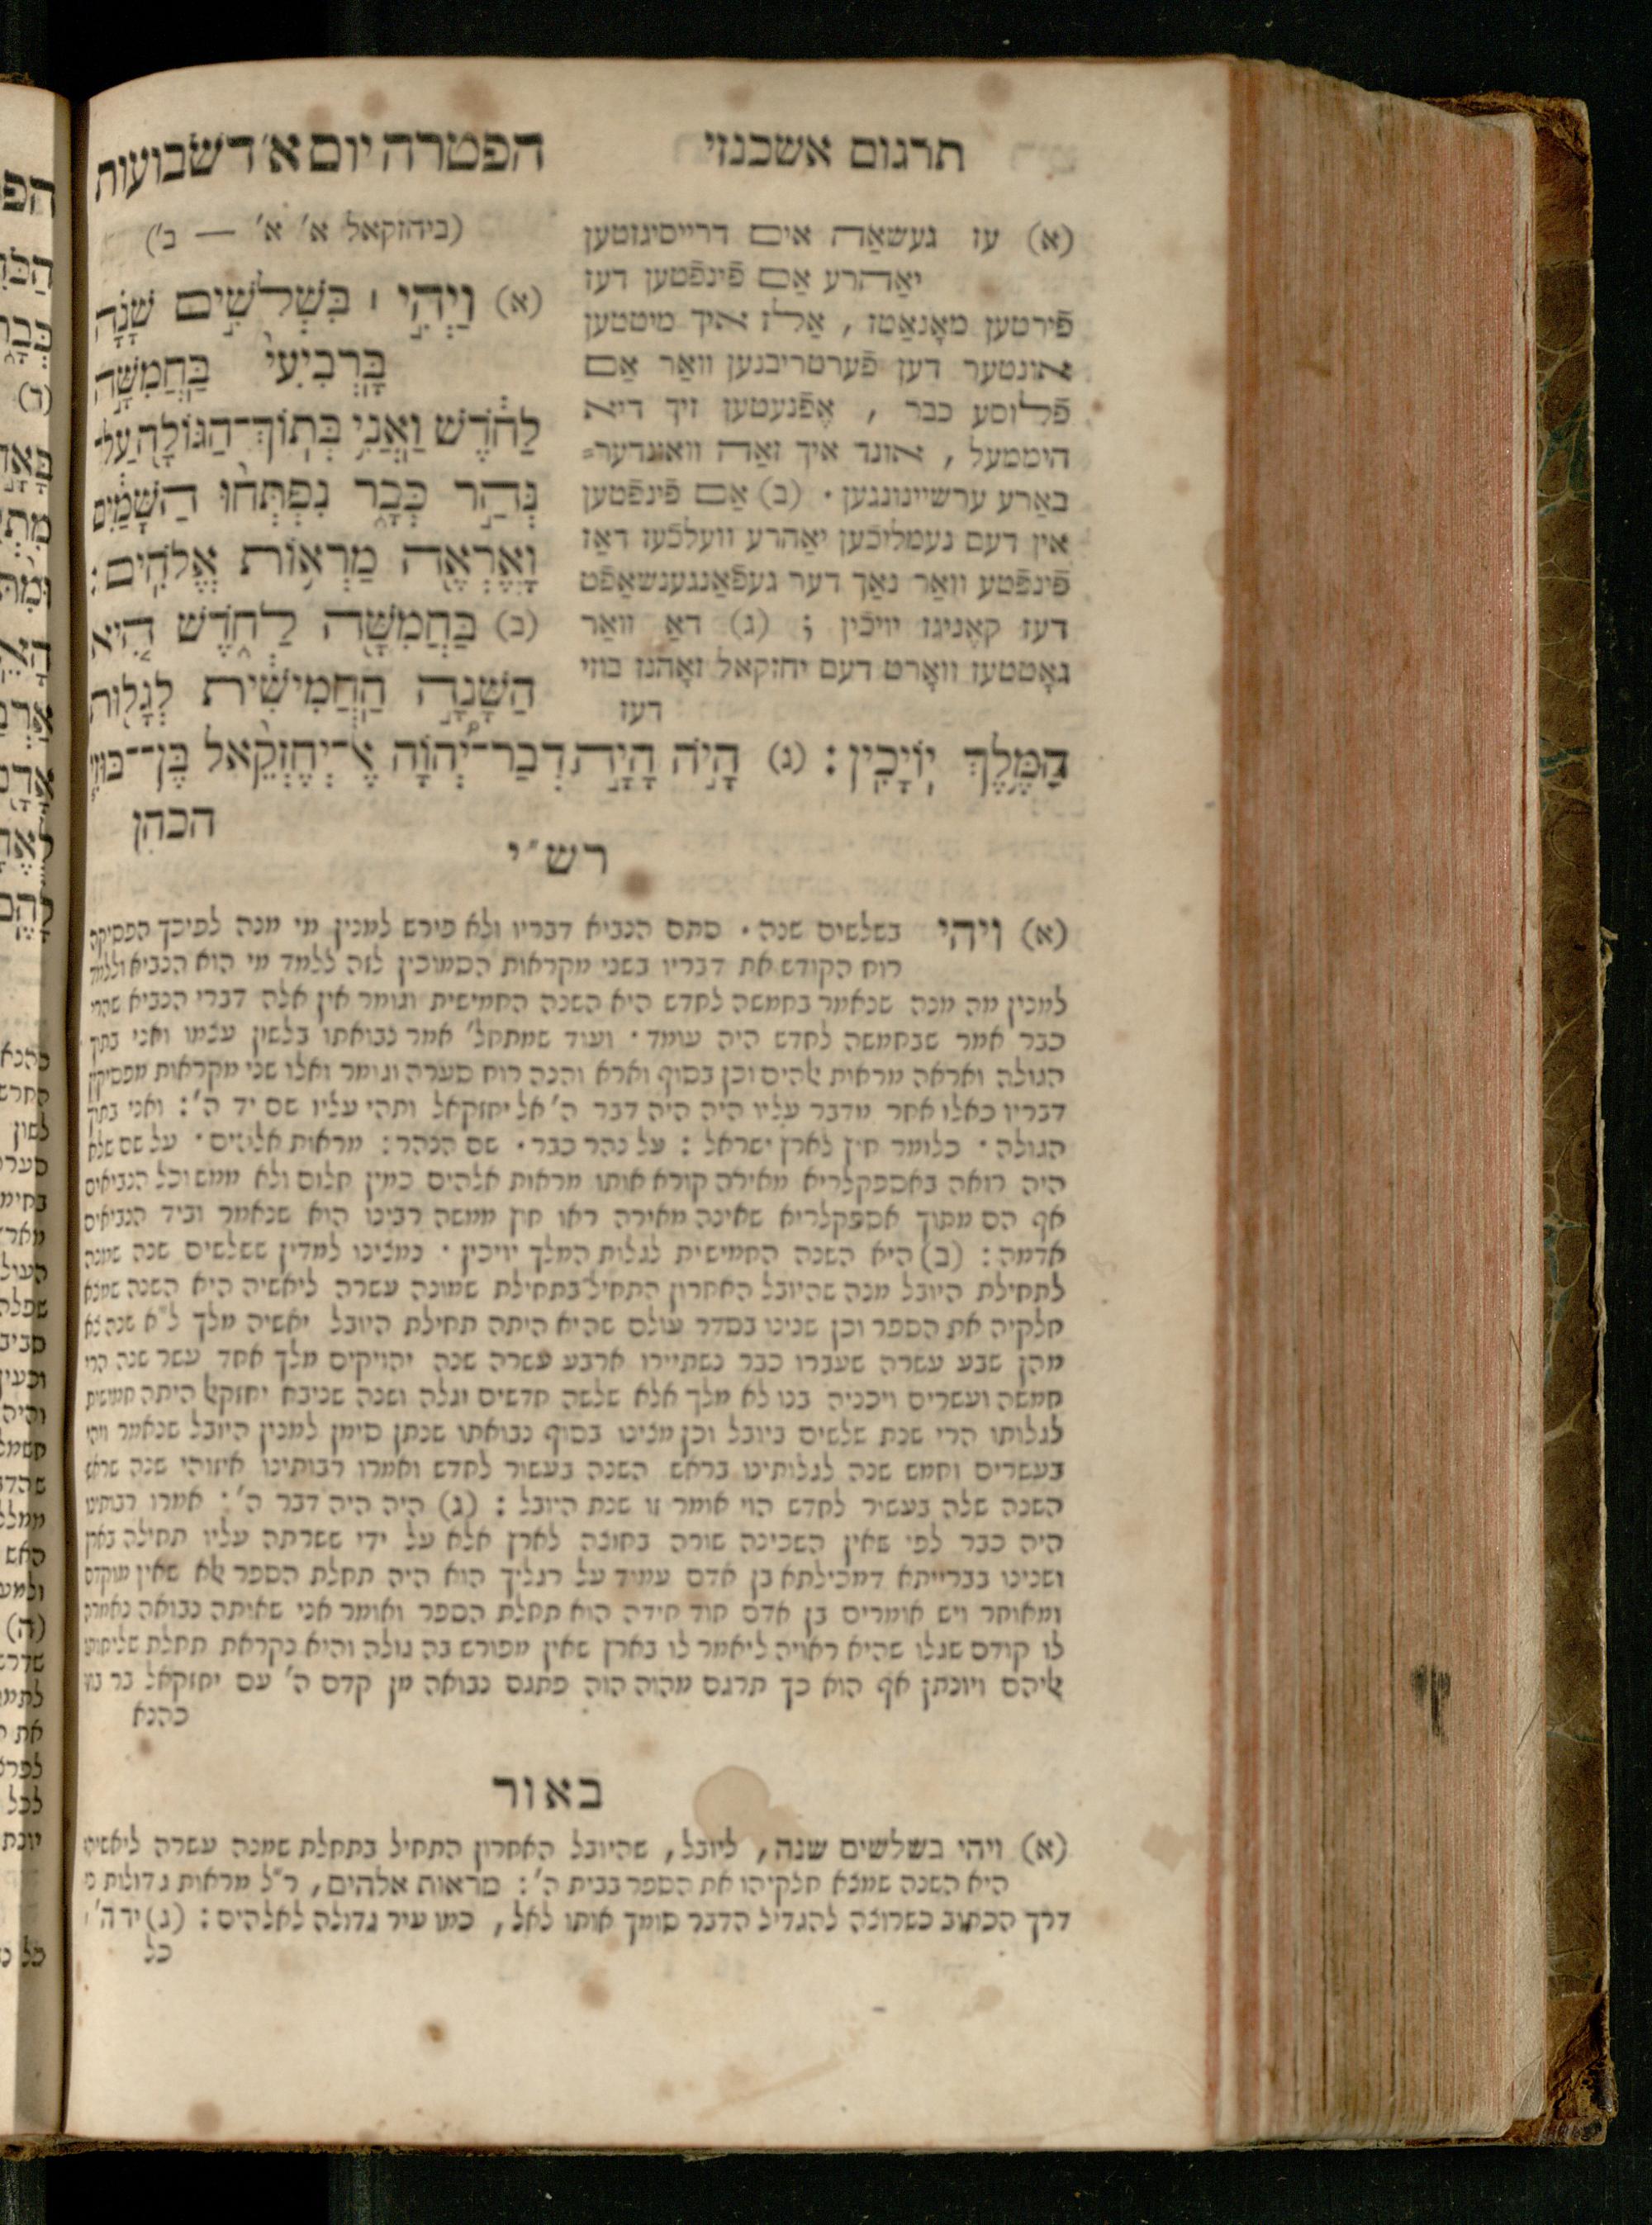 תרגום אשכנזי
הפטרה יום א׳ דשבועות
(ביחזקאל א׳ א׳ — ב׳)
(א) וַיְהִ֣י ׀ בִּשְׁלֹשִׁ֣ים שָׁנָ֗ה
בָּֽרְבִיעִי֙ בַּחֲמִשָּׁ֣ה
לַחֹ֔דֶשׁ וַאֲנִ֥י בְתֽוֹךְ־הַגּוֹלָ֖ה עַל־
נְהַר־ כְּבָ֑ר נִפְתְּחוּ֙ הַשָּׁמַ֔יִם
וָאֶרְאֶ֖ה מַרְא֥וֹת אֱלֹהִֽים:
(ב) בַּחֲמִשָּׁ֖ה לַחֹ֑דֶשׁ הִ֚יא
הַשָּׁנָ֣ה הַחֲמִישִׁ֔ית לְגָל֖וּת
(א) עז געשאַה אים דרייסיגזטען
יאַהרע אַם פֿינפֿטען דעז
פֿירטען מאָנאַטז, אַלז איך מיטטען
אונטער דען פֿערטריבנען וואַר אַם
פֿלוסע כבר, אָפֿנעטען זיך דיא
היממעל, אונד איך זאַה וואונדער=
באַרע ערשיינונגען. (ב) אַם פֿינפֿטען
אין דעם נעמליכֿען יאַהרע וועלכֿעז דאַז
פֿינפֿטע וואַר נאַך דער געפֿאַנגענשאַפֿט
דעז קאָניגז יויכֿין; (ג) דאַ וואַר
גאָטטעז וואָרט דעם יחזקאל זאָהנז בוזי
דעז
הַמֶּ֥לֶךְ יוֹיָכִֽין: (ג) הָיֹ֣ה הָיָ֣ה דְבַר־יְ֠הוָֹה אֶל־יְחֶזְקֵ֨אל בֶּן־בּוּזִ֧י
הכהן
רש״י
(א) ויהי בשלשים שנה. סתם הנביא דבריו ולא פירש למנין מי מנה לפיכך הפסיקה
רוח הקודש את דבריו בשני מקראות הסמוכין לזה ללמד מי הוא הנביא וללמד
למנין מה מנה שנאמר בחמשה לחדש היא השנה החמישית וגומר אין אלה דברי הנביא שהרי
כבר אמר שבחמשה לחדש היה עומד. ועוד שמתחל׳ אמר נבואתו בלשון עצמו ואני בתוך
הגולה ואראה מראות אלהים וכן בסוף וארא והנה רוח סערה וגומר ואלו שני מקראות מפסיקין
דבריו כאלו אחר מדבר עליו היה היה דבר ה׳ אל יחזקאל ותהי עליו שם יד ה׳: ואני בתוך
הגולה. כלומר חוץ לארץ ישראל: על נהר כבר. שם הנהר: מראות אלהים. על שם שלא
היה רואה באספקלריא מאירה קורא אותו מראות אלהים כמין חלום ולא ממש וכל הנביאים
אף הם מתוך אספקלריא שאינה מאירה ראו חוץ ממשה רבינו הוא שנאמר וביד הנביאים
אדמה: (ב) היא השנה החמישית לגלות המלך יויכין. במצינו למדין ששלשים שנה שמנה
לתחילת היובל מנה שהיובל האחרון התחיל בתחילת שמונה עשרה ליאשיה היא השנה שמצא
חלקיה את הספר וכן שנינו בסדר עולם שהיא היתה תחילת היובל יאשיה מלך ל״א שנה צא
מהן שבע עשרה שעברו כבר נשתיירו ארבע עשרה שנה יהויקים מלך אחד עשר שנה הרי
חמשה ועשרים ויכניה בנו לא מלך אלא שלשה חדשים וגלה ושנה שניבא יחזקאל היתה חמישית
לגלותו הרי שנת שלשים ביובל וכן מצינו בסוף נבואתו שנתן סימן למנין היובל שנאמר ויהי
בעשרים וחמש שנה לגלותינו בראש השנה בעשור לחדש ואמרו רבותינו איזוהי שנה שראש
השנה שלה בעשור לחדש הוי אומר זו שנת היובל: (ג) היה היה דבר ה׳: אמרו רבותינו
היה כבר לפי שאין השכינה שורה בחוצה לארץ אלא על ידי ששרתה עליו תחילה בארץ
ושנינו בברייתא דמכילתא בן אדם עמוד על רגליך הוא היה תחלת הספר אלא שאין מוקדם
ומאוחר ויש אומרים בן אדם חוד חידה הוא תחלת הספר ואומר אני שאותה נבואה נאמרה
לו קודם שגלו שהיא ראויה ליאמר לו בארץ שאין מפורש בה גולה והיא נקראת תחלת שליחותו
אליהם ויונתן אף הוא כך תרגם מהוה הוה פתגם נבואה מן קדם ה׳ עם יחזקאל בר בוזי
כהנא
באור
(א) ויהי בשלשים שנה, ליובל, שהיובל האחרון התחיל בתחלת שמנה עשרה ליאשיהו
היא השנה שמצא חלקיהו את הספר בבית ה׳: מראות אלהים, ר״ל מראות גדולות
דרך הכתוב כשרוצה להגדיל הדבר סומך אותו לאל, כמו עיר גדולה לאלהים: (ג) יד ה׳
כל